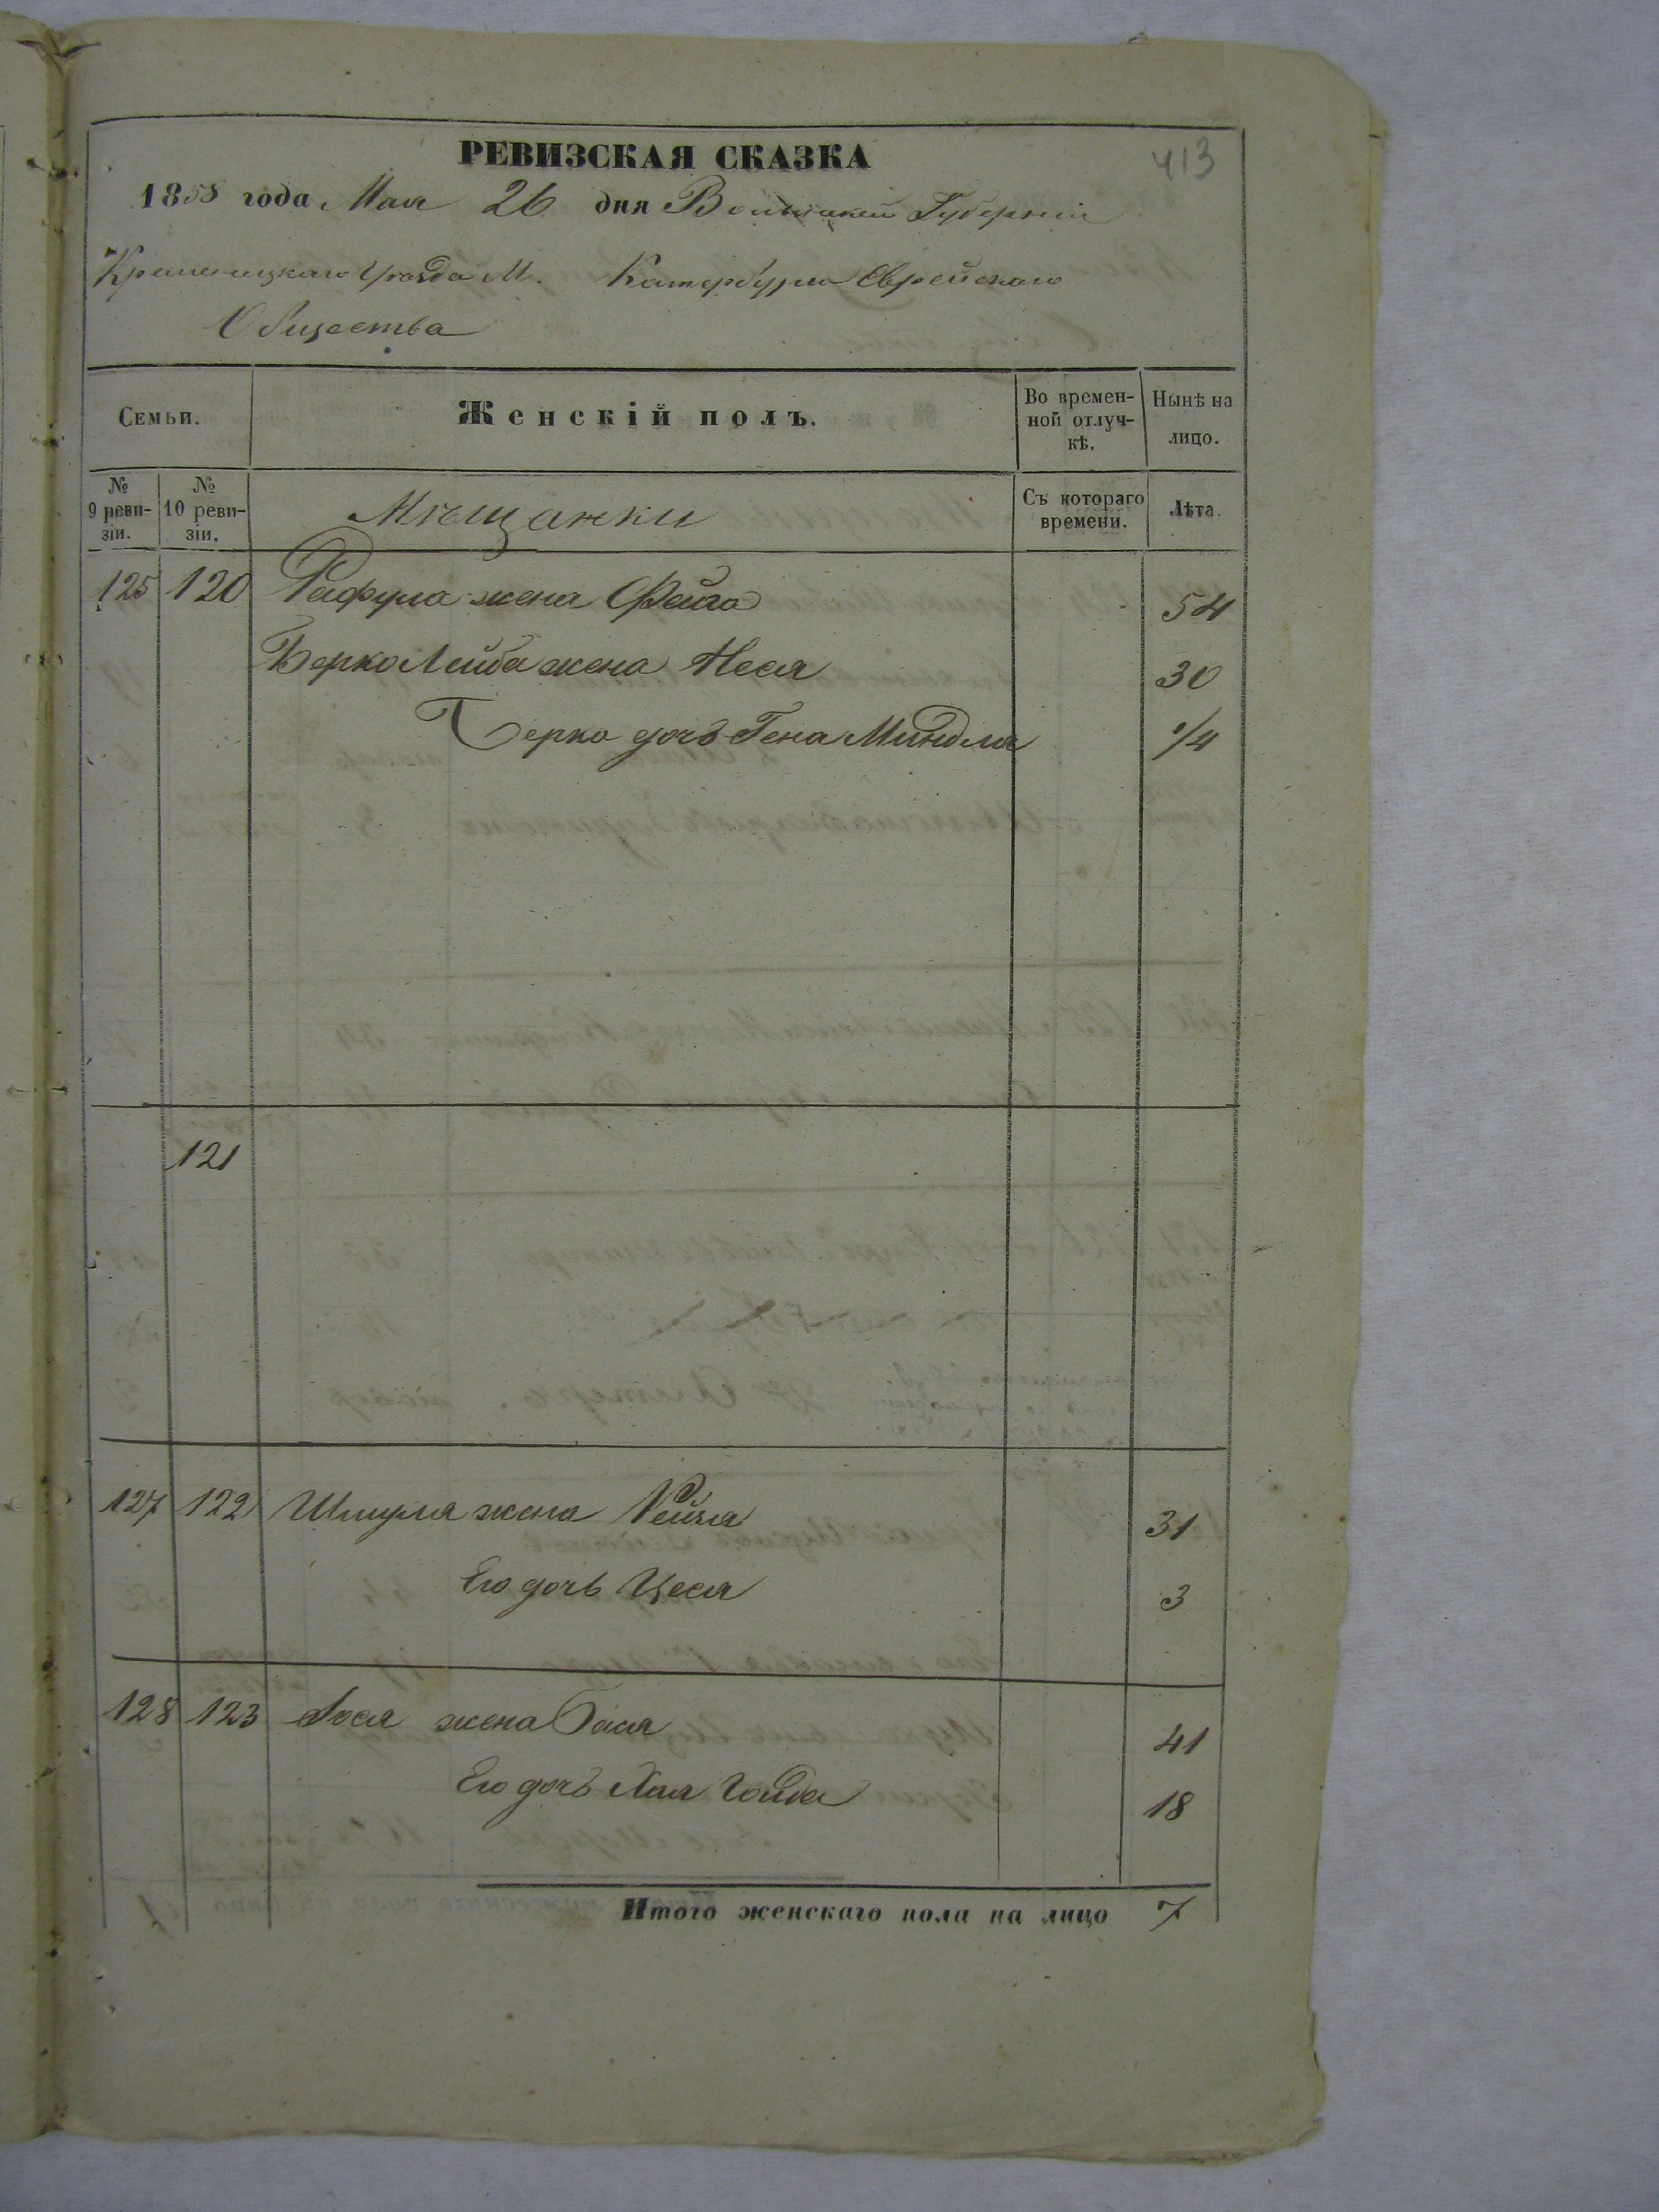 РЕВИЗСКАЯ СКАЗКА
413
1858 года Мая 26 дня Волынской Губерніи
Кременецкаго Уѣзда М. Катербурга Еврейскаго
Общества
Семьи.
Женскій полъ.
Во времен-
ной отлуч-
кѣ.
Нынѣ на
лицо.
№
9 реви-
зіи.
№
10 реви-
зіи.
Мѣщанки
Съ котораго
времени.
Лѣта.
125 120 Рафула жена Фейга 54
Берко Лейба жена Неся 30
Берко дочь Гена Миндля 1/4
121
127 122 Шмуля жена Рейзя 31
Его дочь Цеся 3
128 123 жена Бася 41
Его дочь Хая Гольда 18
Итого женскаго пола на лицо 7